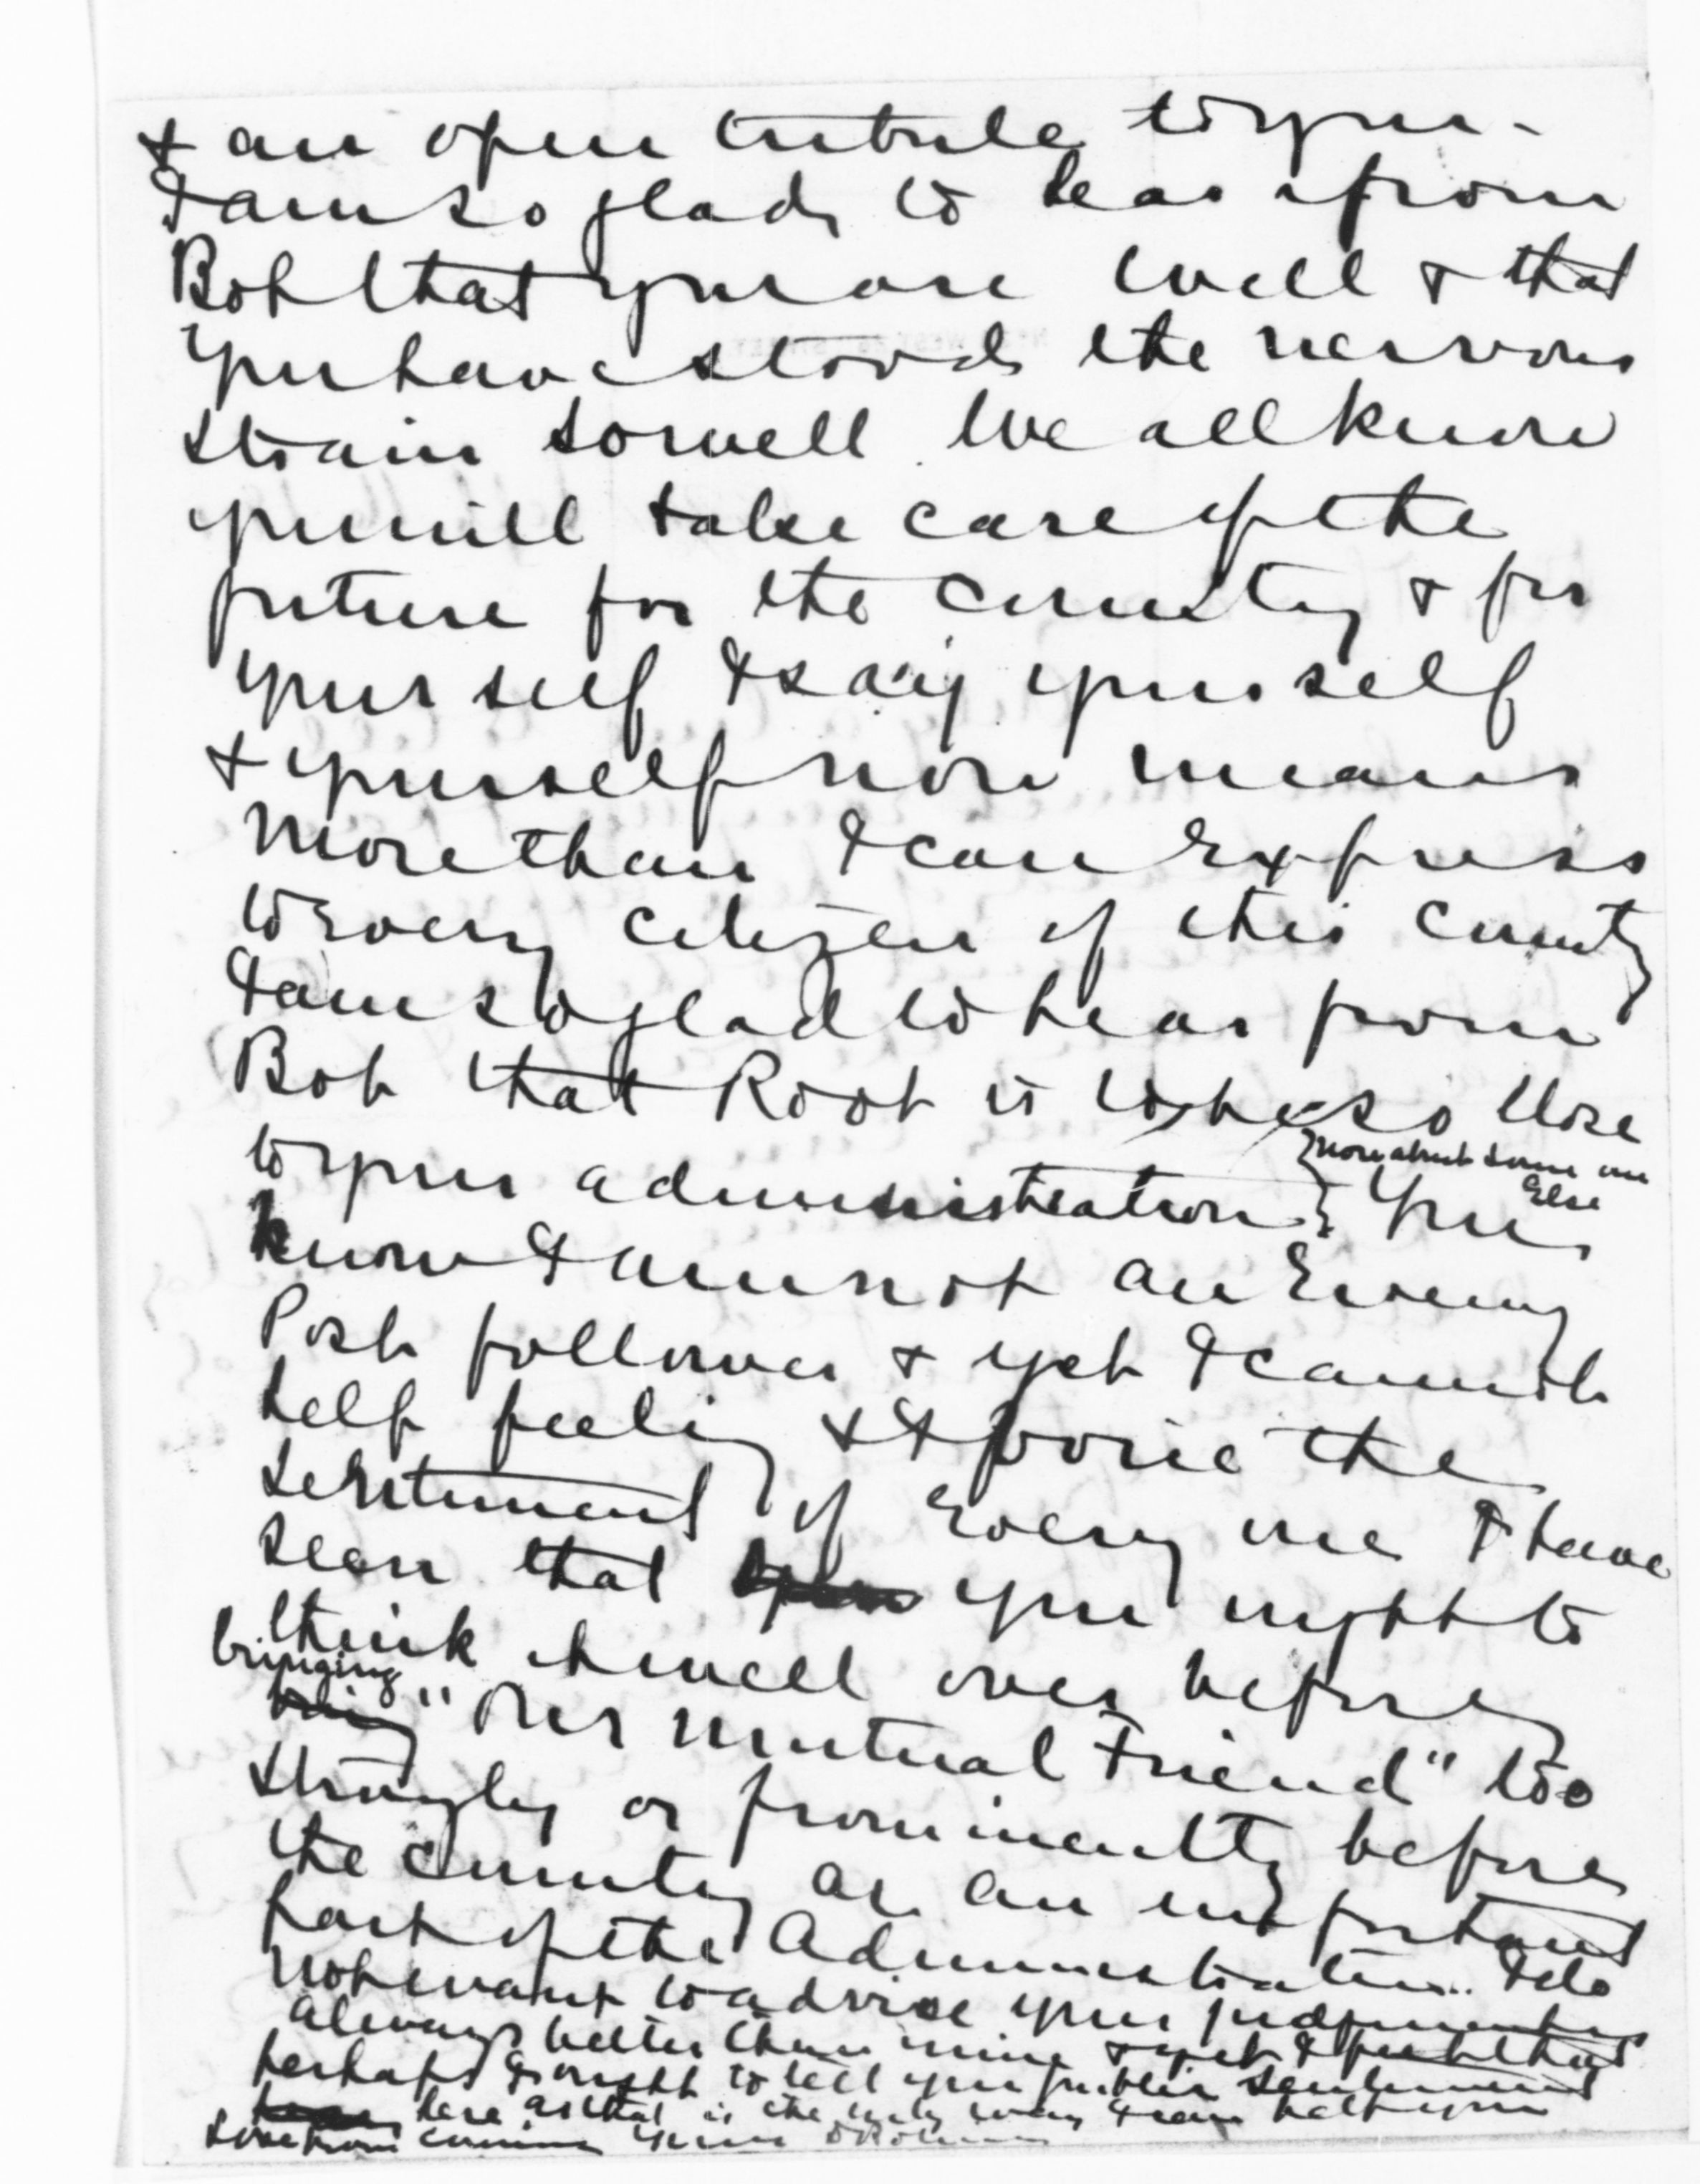 & an open tribute to you -
I am so glad to hear from
Bob that you are well & that
you have stood the nervous
strain so well. We all know
you will take care of the
future for the country & for
yourself I say yourself
& yourself now means
more than I can Express
to Every citizen of this country
I am so glad to hear from
Bob that Root is to be so close
to your administration } You
{ More about some one
Else
know I am not an Evening
Post follower & yet I cannot
help feeling & I voice the
sentiment of Every one I have
seen that you ought to
think it well over before
bringing
"Our Mutual Friend" too
strongly or prominently before
the country as an important
part of the Administration. I do
not want to advise your judgment is
always better than mine & yet I feel that
perhaps I ought to tell you public sentiment
here as that is the only way I can help you